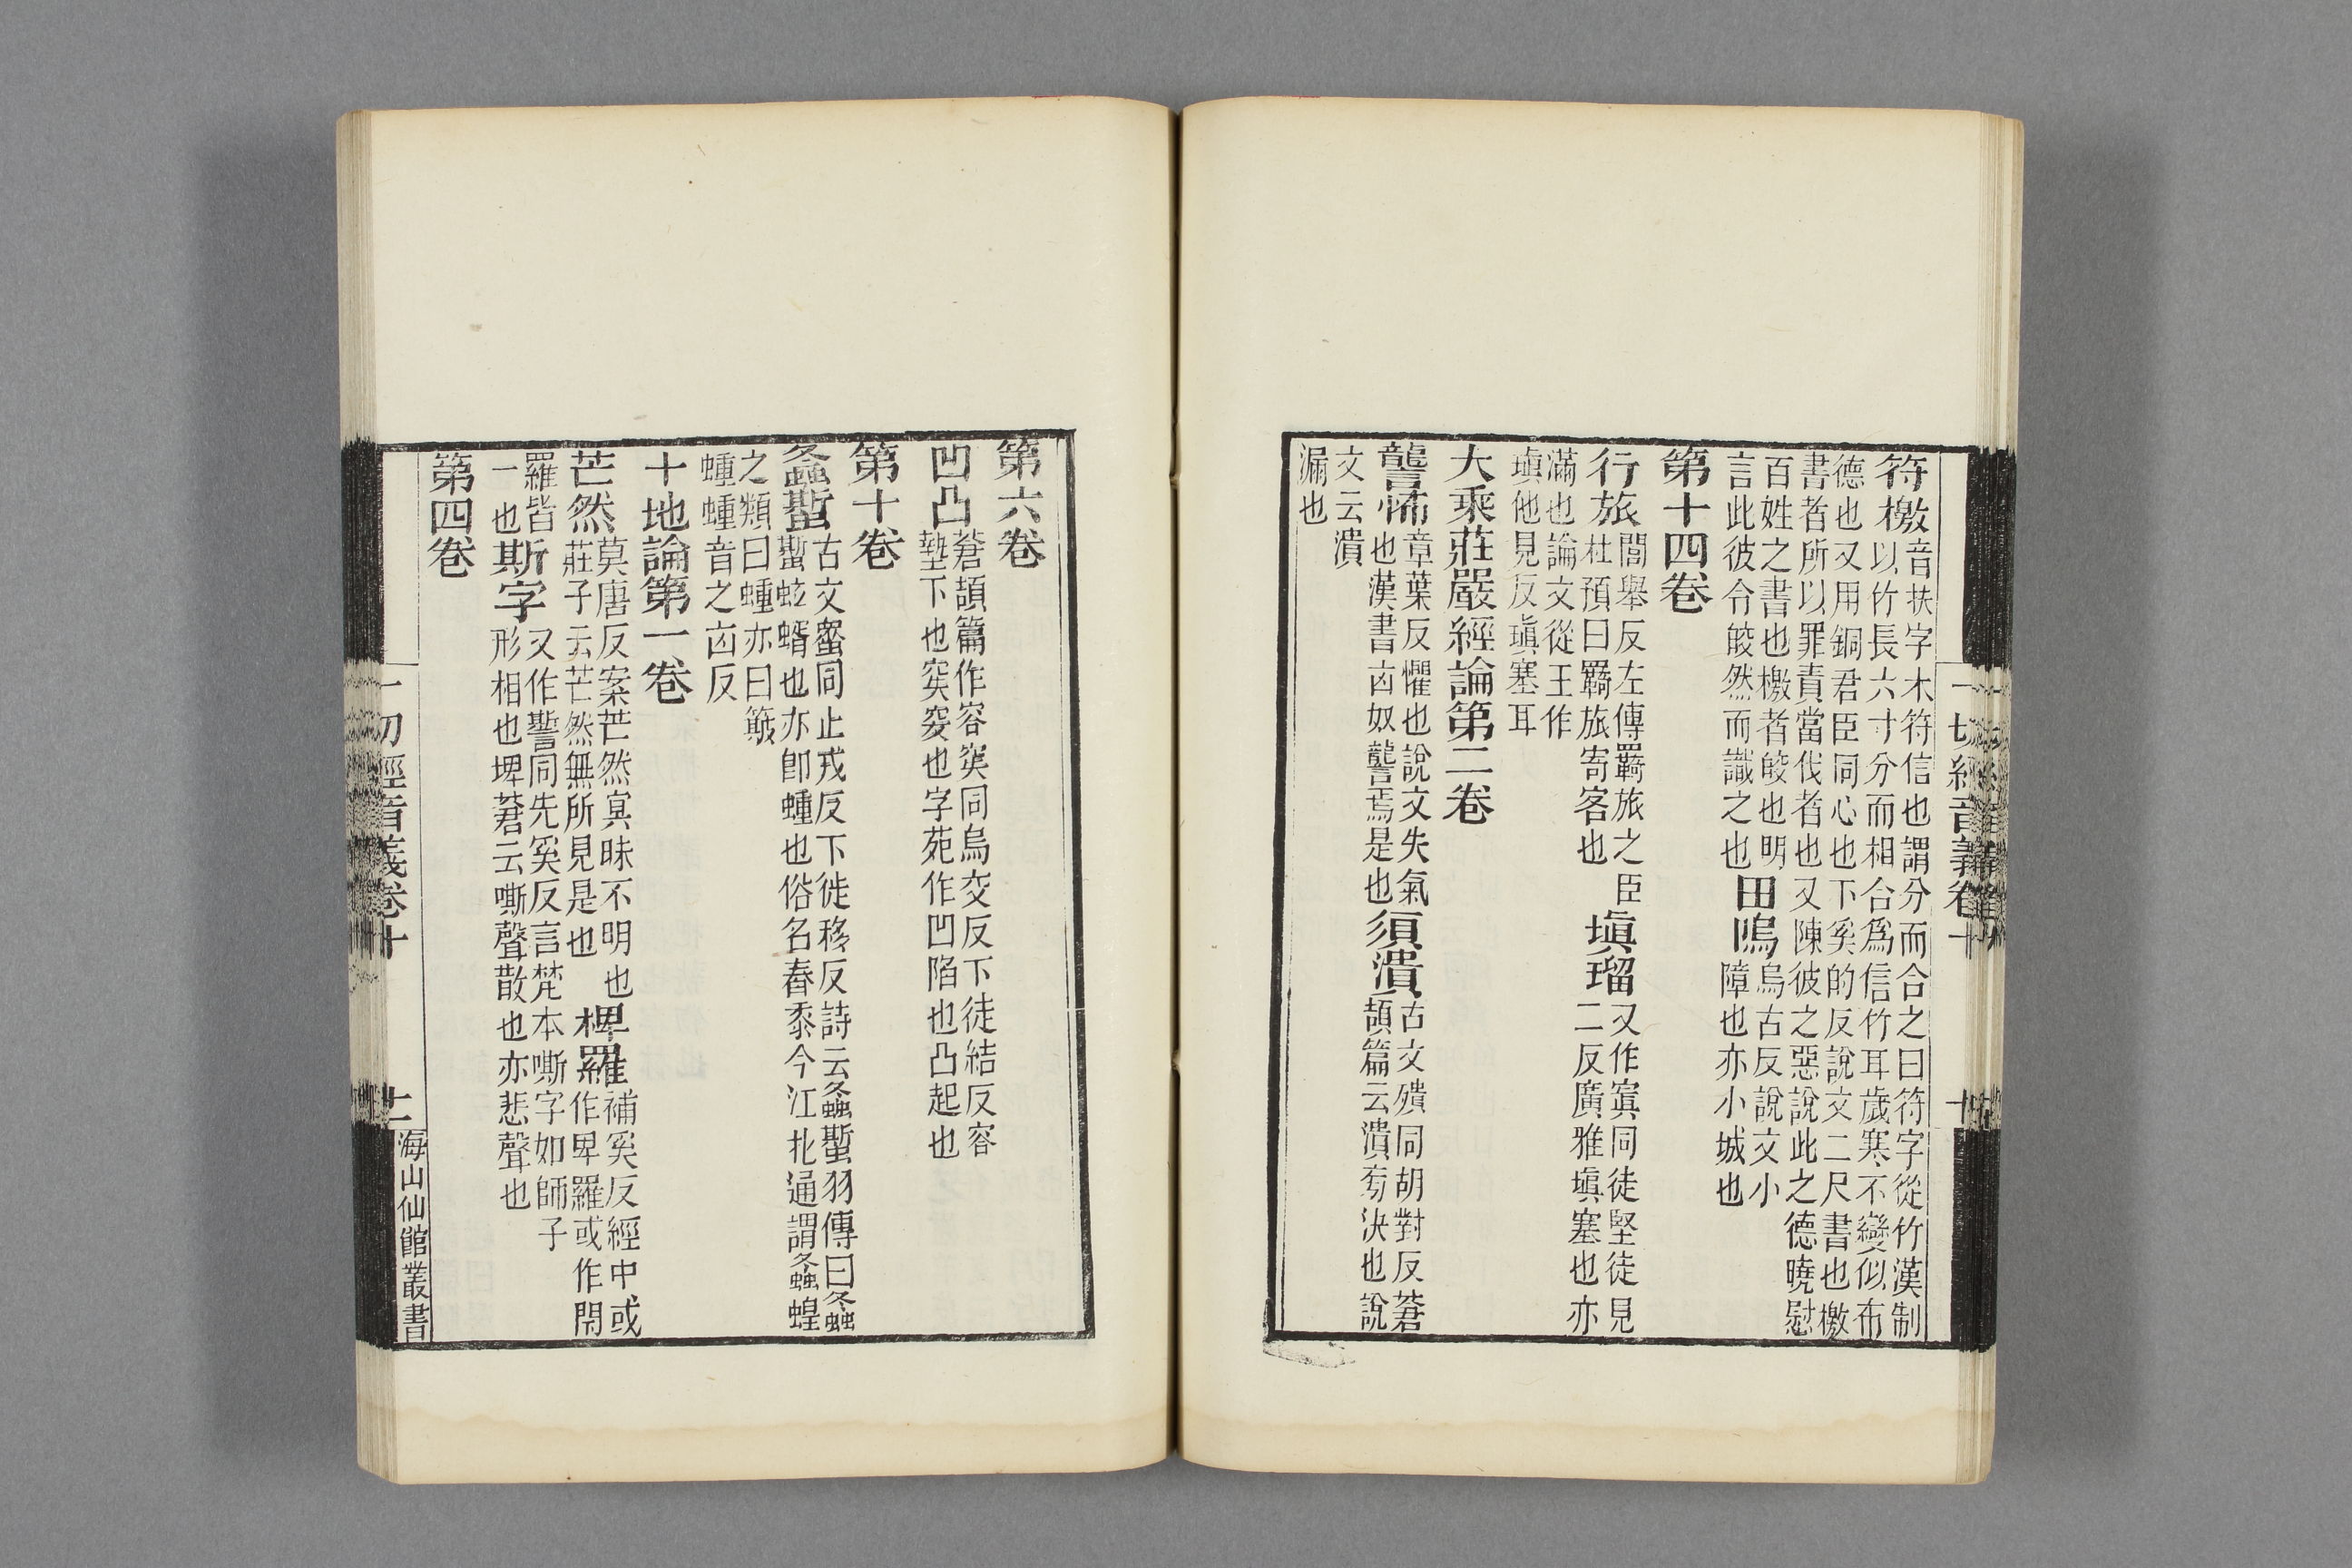 符檄音扶字木符信也謂分而合之曰符字從竹漢制
以竹長六寸分而相合爲信竹耳歲寒不變似布
德也又用銅君臣同心也下奚的反說文二尺書也檄
書者所以罪責當伐者也又陳彼之惡說此之德曉慰
百姓之書也檄者皎也明
言此彼令皎然而識之也
田隝烏古反說文小
障也亦小城也
第十四卷
行旅閭舉反左傳羇旅之臣
杜預曰羇旅寄客也
塡瑠又作窴同徒堅徒見
二反廣雅塡塞也亦
滿也論文從王作
瑱他見反瑱塞耳
大乘莊嚴經論第二卷
讋怖章葉反懼也說文失氣
也漢書匈奴讋焉是也
須潰古文殨同胡對反蒼
頡篇云潰旁決也說
文云潰
漏也
一切經音義卷十
第六卷
凹凸蒼頡篇作容突同烏交反下徒結反容
墊下也突穾也字苑作凹陷也凸起也
第十卷
螽蟴古文螽同止戎反下徙移反詩云螽蟴羽傳曰螽
蟴蚣蝑也亦卽蝩也俗名舂黍今江北通謂螽蝗
之類曰蝩亦曰簸
蝩蝩音之凶反
十地論第一卷
芒然莫唐反案芒然寘昧不明也
莊子云芒然無所見是也
椑羅補奚反經中或
作卑羅或作閇
羅皆
一也
斯字又作謺同先奚反言梵本嘶字如師子
形相也埤蒼云嘶聲散也亦悲聲也
第四卷
一切經音義卷十
十二
海山仙館叢書